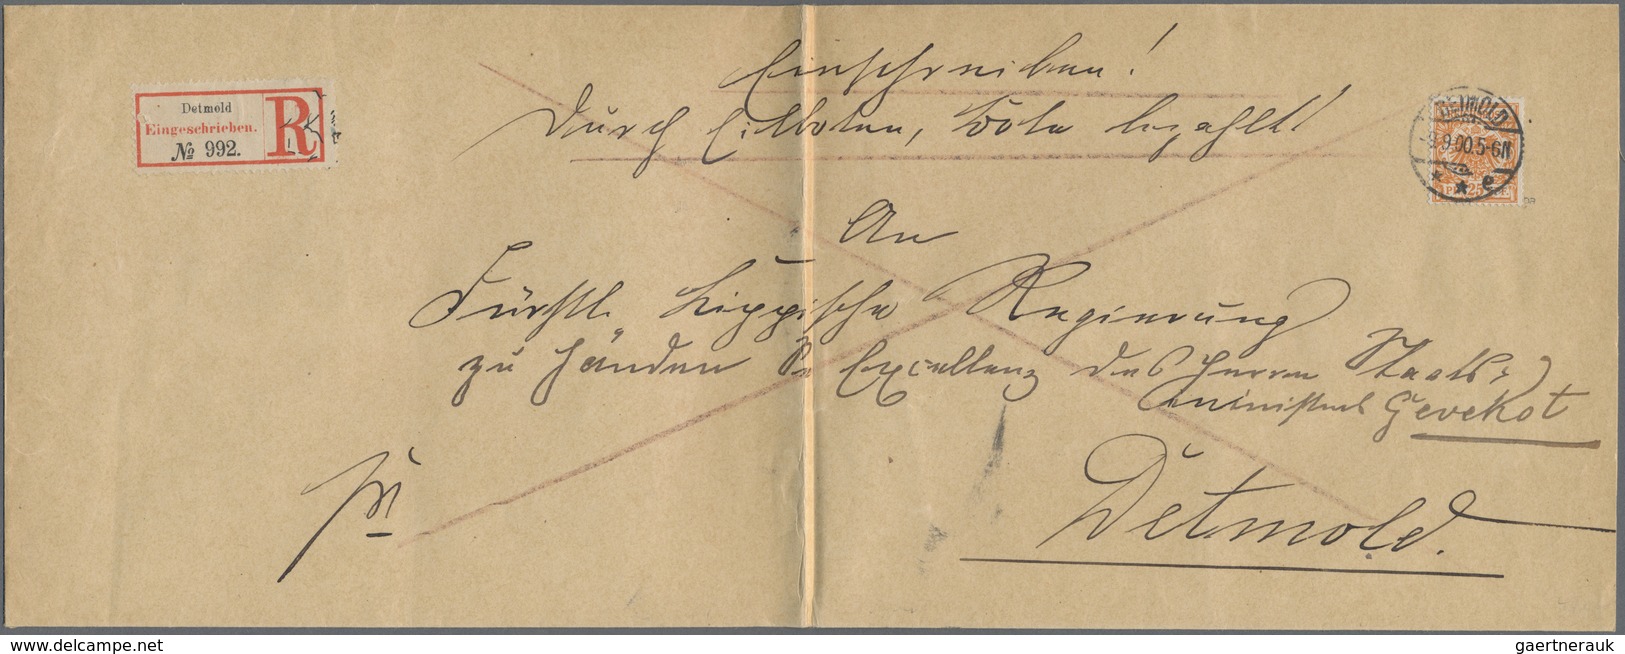 Einschreiben!
Durch Eilboten, Bote bezahlt!
Detmold
Eingeschrieben.
№ 992.
R
DETMOLD
9.00.5-6N
* * e
25
An
Fürstl. Lippische Regierung
zu Händen Sr Excellenz des Herrn Staats-
ministers Gevekot
Detmold.
www.delcampe.net
gaertnerauk